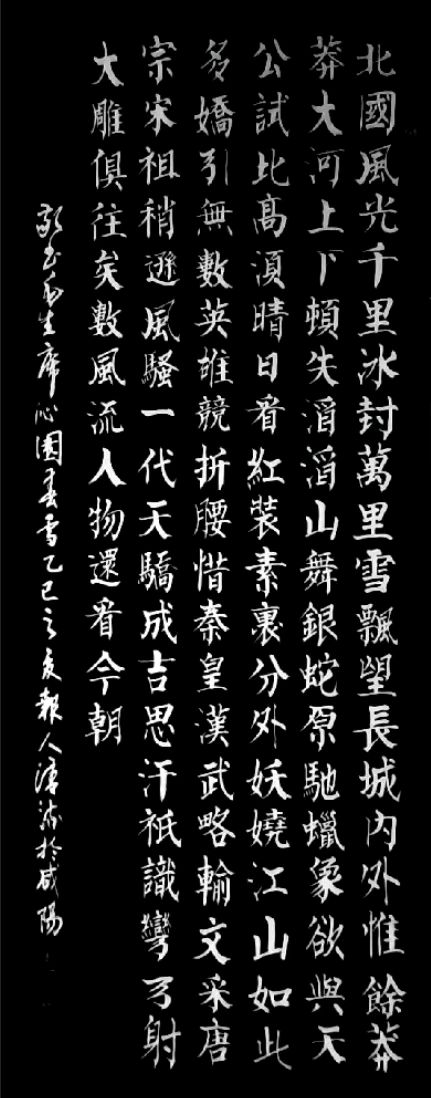 北國風光千里冰封萬里雪飄望長城內外惟餘莽
莽大河上下頓失滔滔山舞銀蛇原馳蠟象欲與天
公試比高須晴日看紅裝素裹分外妖嬈江山如此
多嬌引無數英雄競折腰惜秦皇漢武略輸文采唐
宗宋祖稍遜風騷一代天驕成吉思汗祇識彎弓射
大雕俱往矣數風流人物還看今朝
敬書毛主席沁園春雪乙巳之夏報人於咸陽